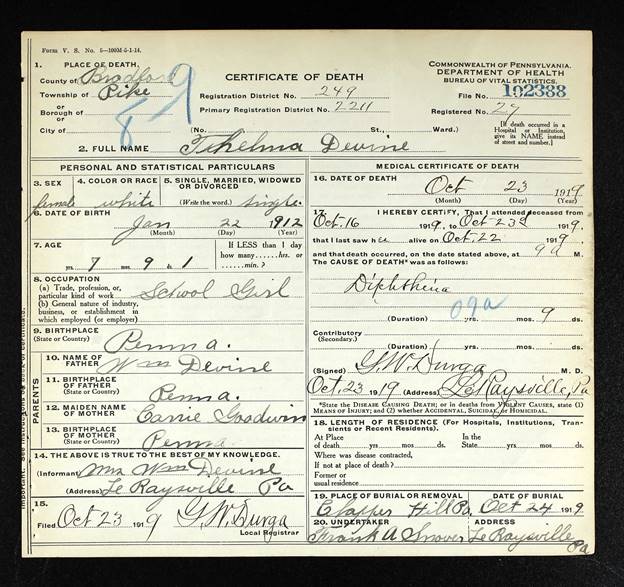 Form V. S. No. 5—100M-5-1-14.
1. PLACE OF DEATH.
County of Bradford
Township of Pike
or
Borough of
or
City of
8 9
CERTIFICATE OF DEATH
Registration District No. 249
Primary Registration District No. 2211
COMMONWEALTH OF PENNSYLVANIA.
DEPARTMENT OF HEALTH
BUREAU OF VITAL STATISTICS.
File No. 102388
Registered No. 27
(No. St., Ward.)
[If death occurred in a Hospital or Institution, give its NAME instead of street and number.]
2. FULL NAME Thelma Devine
PERSONAL AND STATISTICAL PARTICULARS
3. SEX
female
4. COLOR OR RACE
white
5. SINGLE, MARRIED, WIDOWED OR DIVORCED
(Write the word.) single
6. DATE OF BIRTH
Jan 22 1912
(Month) (Day) (Year)
7. AGE
7 yrs. 9 mos. 1 ds.
If LESS than 1 day how many hrs. or min.?
8. OCCUPATION
(a) Trade, profession, or particular kind of work School Girl
(b) General nature of industry, business, or establishment in which employed (or employer)
9. BIRTHPLACE
(State or Country) Penna.
PARENTS
10. NAME OF FATHER Wm Devine
11. BIRTHPLACE OF FATHER
(State or Country) Penna.
12. MAIDEN NAME OF MOTHER Carrie Goodwin
13. BIRTHPLACE OF MOTHER
(State or Country) Penna
14. THE ABOVE IS TRUE TO THE BEST OF MY KNOWLEDGE.
(Informant) Mrs Wm Devine
(Address) Le Raysville Pa
15.
Filed Oct 23 1919 G.W. Durga
Local Registrar
MEDICAL CERTIFICATE OF DEATH
16. DATE OF DEATH
Oct 23 1919
(Month) (Day) (Year)
17. I HEREBY CERTIFY, That I attended deceased from
Oct. 16 1919, to Oct. 23d 1919
that I last saw her alive on Oct. 22 1919
and that death occurred, on the date stated above, at 9 a M.
The CAUSE OF DEATH* was as follows:
Diphtheria
09a
(Duration) yrs. mos. 9 ds.
Contributory
(Secondary.)
(Duration) yrs. mos. ds.
(Signed) G.W. Durga M. D.
Oct. 23 1919 (Address) Le Raysville, Pa
*State the DISEASE CAUSING DEATH; or in deaths from VIOLENT CAUSES, state (1) MEANS OF INJURY; and (2) whether ACCIDENTAL, SUICIDAL, or HOMICIDAL.
18. LENGTH OF RESIDENCE (For Hospitals, Institutions, Transients or Recent Residents).
At Place of death yrs. mos. ds. In the State yrs. mos. ds.
Where was disease contracted,
If not at place of death?
Former or usual residence
19. PLACE OF BURIAL OR REMOVAL
Clapper Hill Pa
DATE OF BURIAL
Oct 24 1919
20. UNDERTAKER
Frank A Snover
ADDRESS
Le Raysville Pa